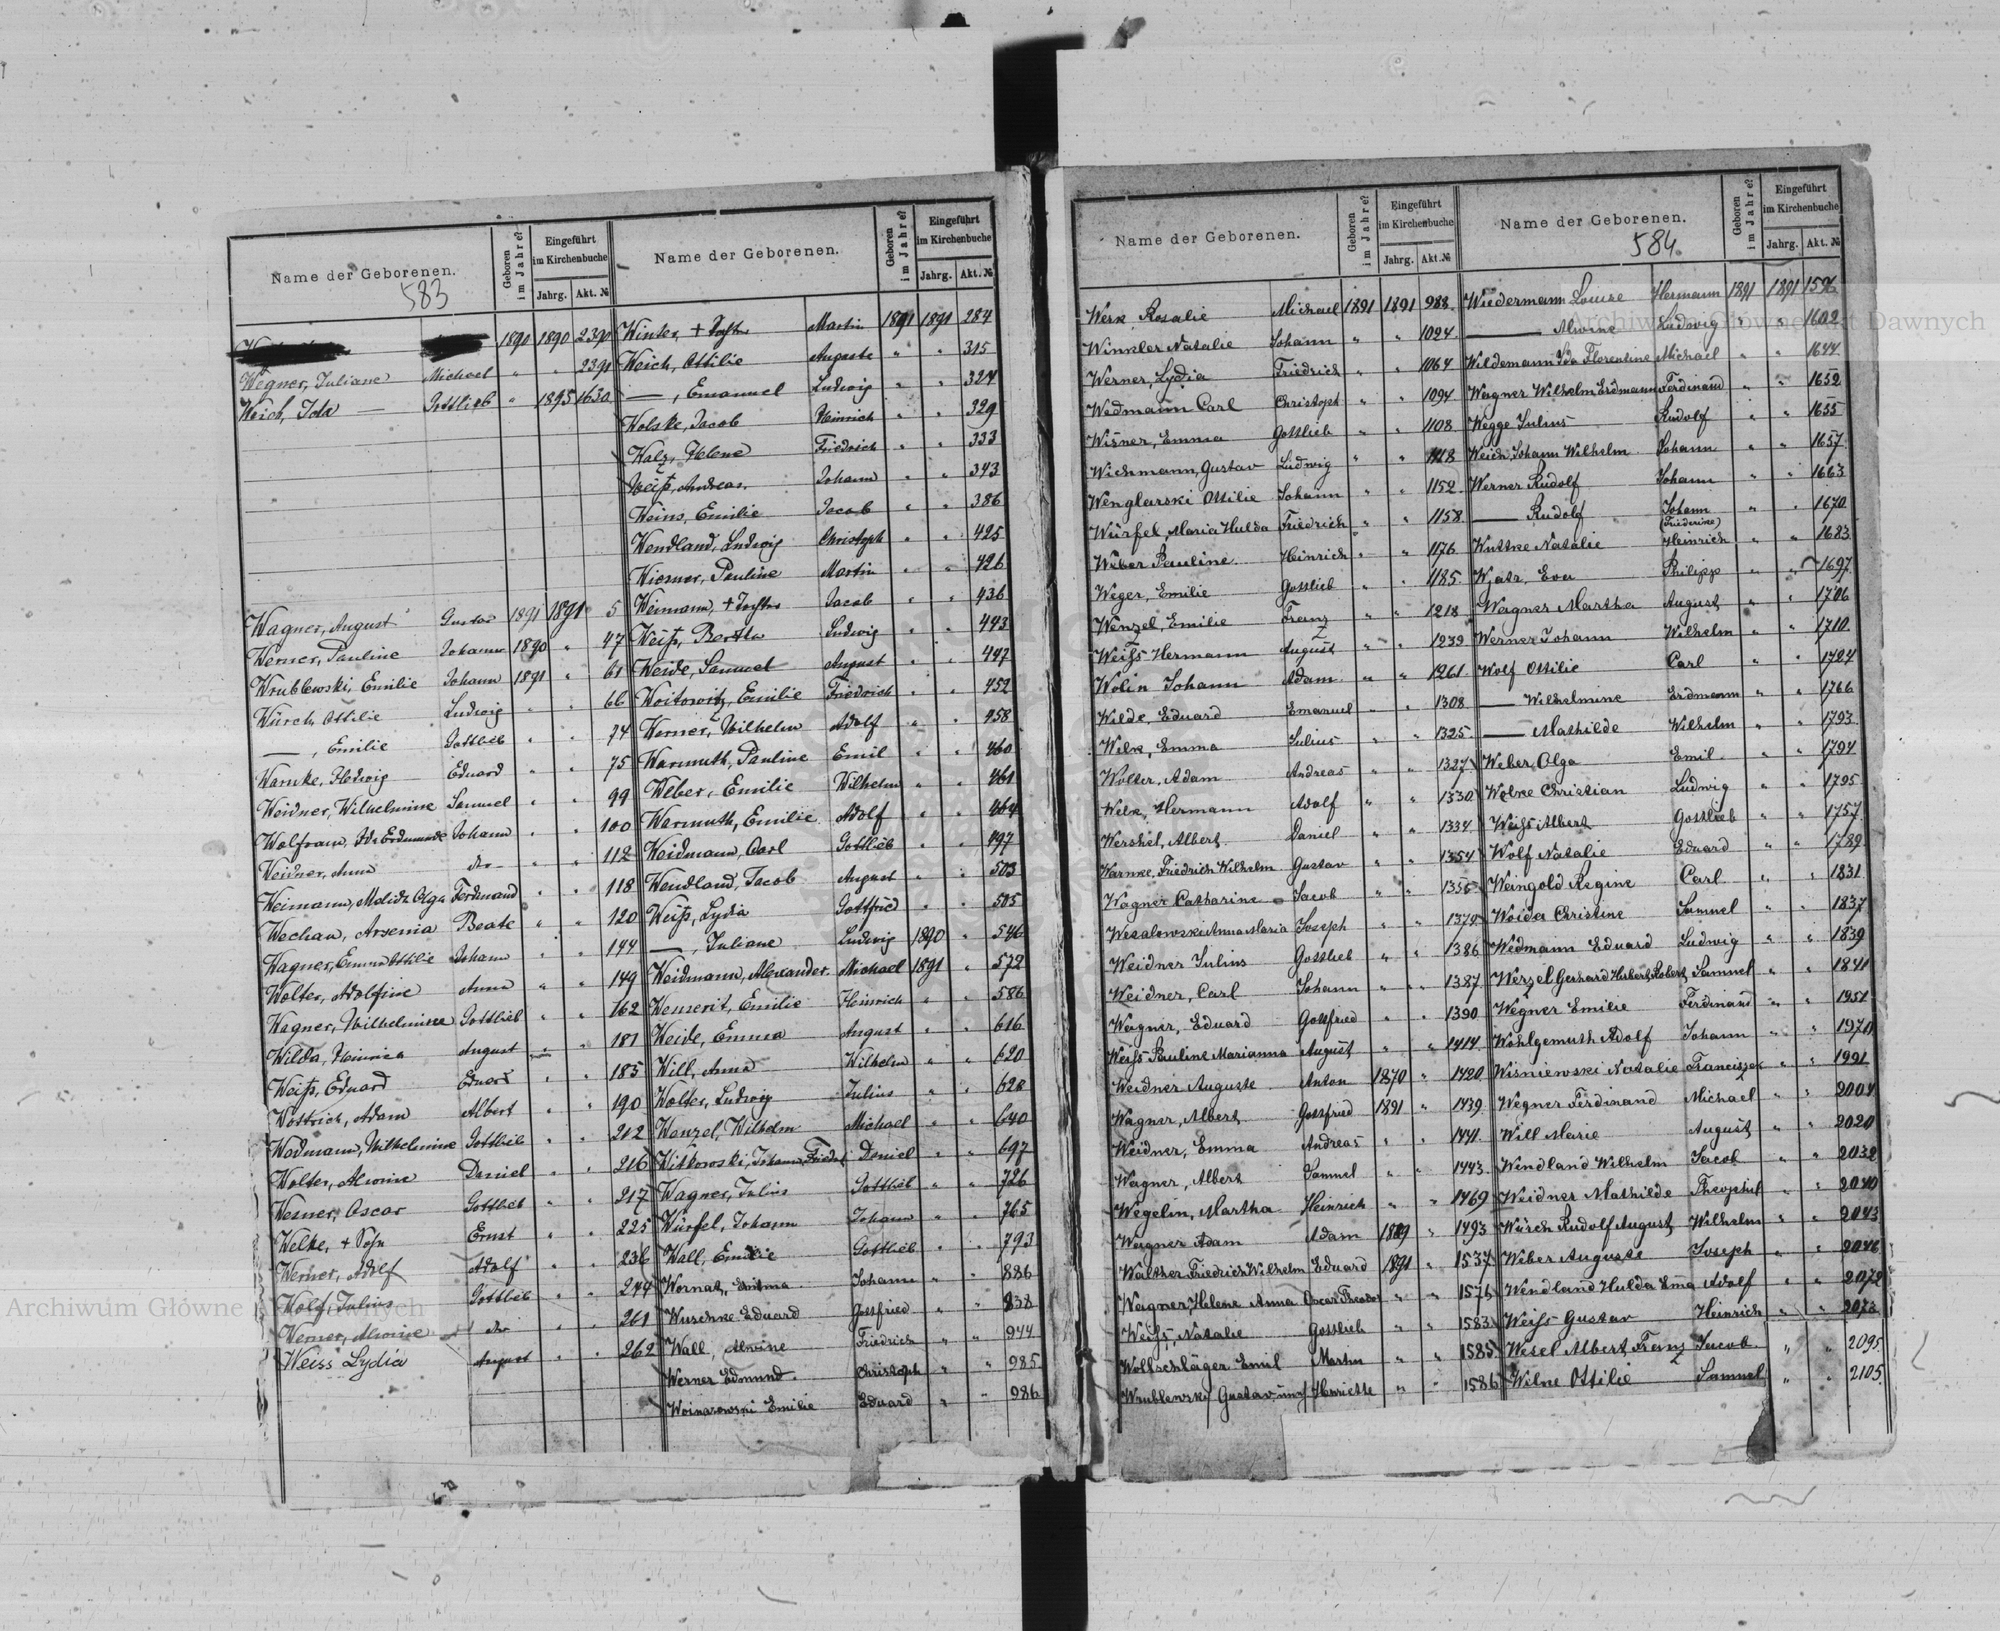 Name der Geborenen.
583
Geboren im Jahre?
Eingeführt im Kirchenbuche
Jahrg. Akt. №
1890 1890 2390
Wegner, Juliane Michael " " 2391
Weich, Ida — Gottlieb " 1895 1630
Wagner, August Gustav 1891 1891 5
Werner, Pauline Johann 1890 " 47
Wrublewski, Emilie Johann 1891 " 61
Würch, Ottilie Ludwig " " 66
—, Emilie Gottlieb " " 74
Warnke, Hedwig Eduard " " 75
Weidner, Wilhelmine Samuel " " 99
Wolfram, Ida Erdmunde Johann " " 100
Weidner, Anna dto " " 112
Weimann, Melida Olga Ferdinand " " 118
Wechau, Arsenia Beate " " 120
Wagner, Emma Ottilie Johann " " 144
Wolter, Adolfine Anna " " 149
Wagner, Wilhelmine Gottlieb " " 162
Wilda, Heinrich August " " 181
Weiß, Eduard Eduard " " 185
Wottrich, Adam Albert " " 190
Wadmann, Wilhelmine Gottlieb " " 212
Wolter, Alwine Daniel " " 216
Wesner, Oscar Gottlieb " " 217
Welke, + Sohn Ernst " " 225
Werner, Adolf Adolf " " 236
Wolf, Julius Gottlieb " " 244
Werner, Alwine dto " " 261
Weiss Lydia August " " 262
Name der Geborenen.
Geboren im Jahre?
Eingeführt im Kirchenbuche
Jahrg. Akt. №
Winter, + Tochter Martin 1891 1891 284
Weich, Ottilie Auguste " " 315
—, Emanuel Ludwig " " 327
Wolske, Jacob Heinrich " " 329
Walz, Helene Friedrich " " 333
Weiß, Andreas. Johann " " 343
Weins, Emilie Jacob " " 386
Wendland, Ludwig Christoph " " 425
Wiesner, Pauline Martin " " 426
Weimann, + Tochter Jacob " " 436
Weiß, Bertha Ludwig " " 443
Weide, Samuel August " " 447
Woitowitz, Emilie Friedrich " " 452
Werner, Wilhelm Adolf " " 458
Warmuth, Pauline Emil " " 460
Weber, Emilie Wilhelm " " 461
Warmuth, Emilie Adolf " " 464
Weidmann, Carl Gottlieb " " 497
Wendland, Jacob August " " 503
Weiß, Lydia Gottfried " " 505
—, Juliane Ludwig 1890 " 546
Weidmann, Alexander Michael 1891 " 572
Wenserit, Emilie Heinrich " " 586
Weide, Emma August " " 616
Will, Anna Wilhelm " " 620
Wolter, Ludwig Julius " " 628
Wenzel, Wilhelm Michael " " 640
Witkowski, Johann Friedr. Daniel " " 697
Wagner, Julius Gottlieb " " 726
Würfel, Johann Johann " " 765
Wall, Emilie Gottlieb " " 793
Wornat, Emma Johann " " 886
Wuschke Eduard Gottfried " " 838
Wall, Alwine Friedrich " " 944
Werner Edmund. Christoph " " 985
Woinarowski Emilie Eduard " " 986
Name der Geborenen.
Geboren im Jahre?
Eingeführt im Kirchenbuche
Jahrg. Akt. №
Werk Rosalie Michael 1891 1891 988
Winkler Natalie Johann " " 1024
Werner, Lydia Friedrich " " 1064
Wedmann Carl Christoph " " 1094
Wisner, Emma Gottlieb " " 1108
Wichmann, Gustav Ludwig " " 1118
Wenglarski Ottilie Johann " " 1152
Würfel, Maria Hulda Friedrich " " 1158
Weber Pauline Heinrich " " 1176
Weger, Emilie Gottlieb " " 1185
Wenzel, Emilie Franz " " 1218
Weiss Hermann August " " 1239
Wolin Johann Adam " " 1261
Wilde, Eduard Emanuel " " 1308
Wilk, Emma Julius " " 1325
Wolter, Adam Andreas " " 1327
Welk, Hermann Adolf " " 1330
Wershel, Albert Daniel " " 1334
Warnke, Friedrich Wilhelm Gustav " " 1354
Wagner Catharine Jacob " " 1356
Wesalowski Anna Maria Joseph " " 1379
Weidner Julius Gottlieb " " 1386
Weidner, Carl Johann " " 1387
Wagner, Eduard Gottfried " " 1390
Weiss Pauline Marianna August " " 1414
Weidner Auguste Anton 1870 " 1420
Wagner, Albert Gottfried 1891 " 1439
Weidner, Emma Andreas " " 1441
Wagner, Albert Samuel " " 1443
Wegelin, Martha Heinrich " " 1469
Wagner Adam Adam 1889 " 1493
Walther Friedrich Wilhelm Eduard 1891 " 1537
Wagner, Helene Anna Oscar Theodor " " 1576
Weiss, Natalie Gottlieb " " 1583
Wollschläger Emil Martin " " 1585
Wrublewski Gustav Henriette " " 1586
Name der Geborenen.
584
Geboren im Jahre?
Eingeführt im Kirchenbuche
Jahrg. Akt. №
Wiedermann Louise Hermann 1891 1891 1596
— Alwine Ludwig " " 1602
Wildemann Ida Florentine Michael " " 1644
Wagner Wilhelm Erdmann Ferdinand " " 1652
Wegge Julius Rudolf " " 1655
Weich, Johann Wilhelm Johann " " 1657
Werner Rudolf Johann " " 1663
— Rudolf Johann (Friederike) " " 1670
Wuttke Natalie Heinrich " " 1683
Wjatr, Eva Philipp " " 1697
Wagner Martha August " " 1706
Werner Johann Wilhelm " " 1710
Wolf Ottilie Carl " " 1724
— Wilhelmine Erdmann " " 1766
— Mathilde Wilhelm " " 1793
Weber Olga Emil " " 1794
Wolke Christian Ludwig " " 1795
Weiss Albert Gottlieb " " 1757
Wolf Natalie Eduard " " 1789
Weingold Regine Carl " " 1831
Woida Christine Samuel " " 1837
Wedmann Eduard Ludwig " " 1839
Wenzel Gerhard Hubert Robert Samuel " " 1841
Wegner Emilie Ferdinand " " 1951
Wohlgemuth Adolf Johann " " 1970
Wisniewski Natalie Franciszek " " 1991
Wegner Ferdinand Michael " " 2004
Will Marie August " " 2020
Wendland Wilhelm Jacob " " 2032
Weidner Mathilde Theophil " " 2040
Würch Rudolf August Wilhelm " " 2043
Weber Auguste Joseph " " 2046
Wendland Hulda Emma Adolf " " 2072
Weiss Gustav Heinrich " " 2073
Wesel Albert Franz Jacob " " 2095
Wilke Ottilie Samuel " " 2105
Archiwum Główne Akt Dawnych